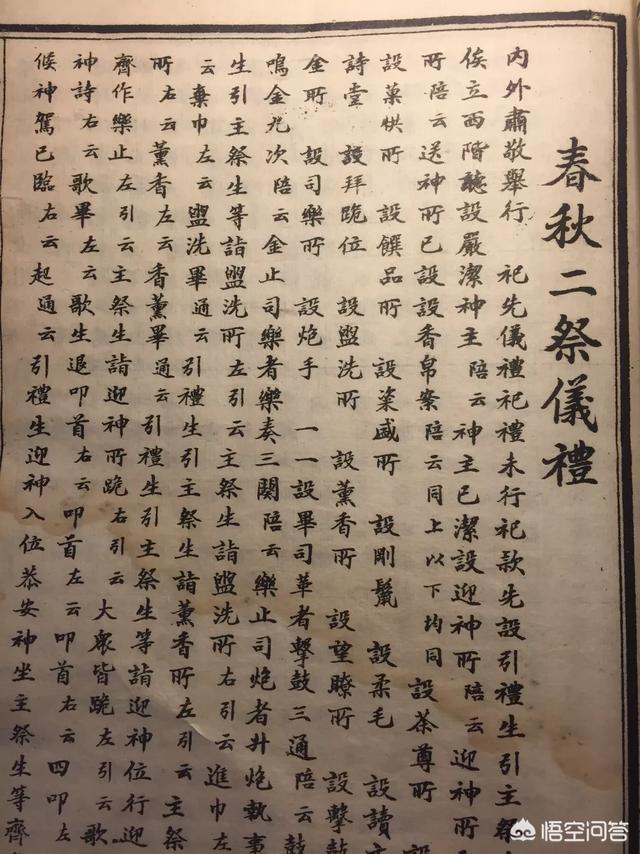 春秋二祭儀禮
內外肅敬舉行 祀先儀禮祀禮未行祀款先設引禮生引主祭
俟立西階聽設嚴潔神主陪云神主已潔設迎神所陪云迎神所
所陪云送神所已設設香帛案陪云同上以下均同 設茶尊所 設
設菓供所 設饌品所 設粢盛所 設剛鬣 設柔毛 設讀
詩堂 設拜跪位 設盥洗所 設薰香所 設望瞭所 設擊鼓
金所 設司樂所 設炮手 一一設畢司革者擊鼓三通陪云鼓
鳴金九次陪云金止司樂者樂奏三闋陪云樂止司炮者升炮執事
生引主祭生等詣盥洗所左引云主祭生詣盥洗所右引云進巾左
云棄巾左云盥洗畢通云引禮生引主祭生詣薰香所左引云 主祭
所右云薰香左云香薰畢通云引禮生引主祭生等詣迎神位行迎
齊作樂止左引云主祭生詣迎神所跪右引云 大衆皆跪左引云歌
神詩右云歌畢左云歌生退叩首右云叩首左云叩首右云四叩左
候神駕已臨右云起通云引禮生迎神入位恭安神坐主祭生等齊
悟空问答